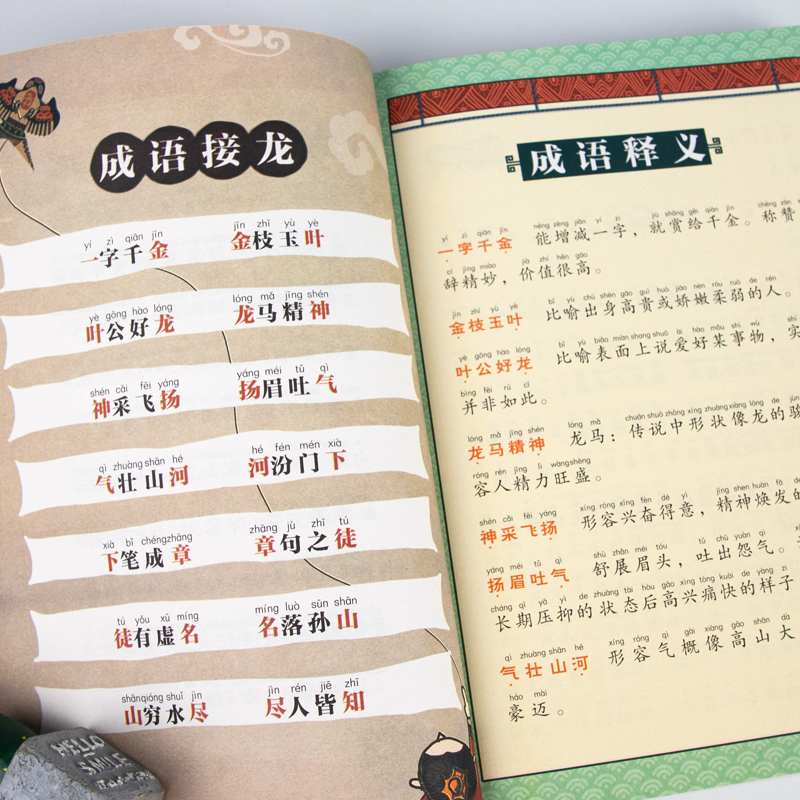 成语接龙
yí zì qiān jīn jīn zhī yù yè
一字千金 金枝玉叶
yè gōng hào lóng lóng mǎ jīng shén
叶公好龙 龙马精神
shén cǎi fēi yáng yáng méi tǔ qì
神采飞扬 扬眉吐气
qì zhuàng shān hé hé fén mén xià
气壮山河 河汾门下
xià bǐ chéng zhāng zhāng jù zhī tú
下笔成章 章句之徒
tú yǒu xū míng míng luò sūn shān
徒有虚名 名落孙山
shān qióng shuǐ jìn jìn rén jiē zhī
山穷水尽 尽人皆知
HELLO
SMILE
成语释义
yí zì qiān jīn néng zēng jiǎn yí zì jiù shǎng gěi qiān jīn chēng zàn
一字千金 能增减一字，就赏给千金。称赞
cí jīng miào jià zhí hěn gāo
辞精妙，价值很高。
jīn zhī yù yè bǐ yù chū shēn gāo guì huò jiāo nèn róu ruò de rén
金枝玉叶 比喻出身高贵或娇嫩柔弱的人。
yè gōng hào lóng bǐ yù biǎo miàn shang shuō ài hào mǒu shì wù shí
叶公好龙 比喻表面上说爱好某事物，实
bìng fēi rú cǐ
并非如此。
lóng mǎ jīng shén lóng mǎ chuán shuō zhōng xíng zhuàng xiàng lóng de jùn
龙马精神 龙马：传说中形状像龙的骏
róng rén jīng lì wàng shèng
容人精力旺盛。
shén cǎi fēi yáng xíng róng xīng fèn dé yì jīng shen huàn fā de
神采飞扬 形容兴奋得意，精神焕发的
yáng méi tǔ qì shū zhǎn méi tóu tǔ chū yuàn qì
扬眉吐气 舒展眉头，吐出怨气。
cháng qī yā yì de zhuàng tài hòu gāo xìng tòng kuài de yàng zi
长期压抑的状态后高兴痛快的样子
qì zhuàng shān hé xíng róng qì gài xiàng gāo shān dà
气壮山河 形容气概像高山大
háo mài
豪迈。